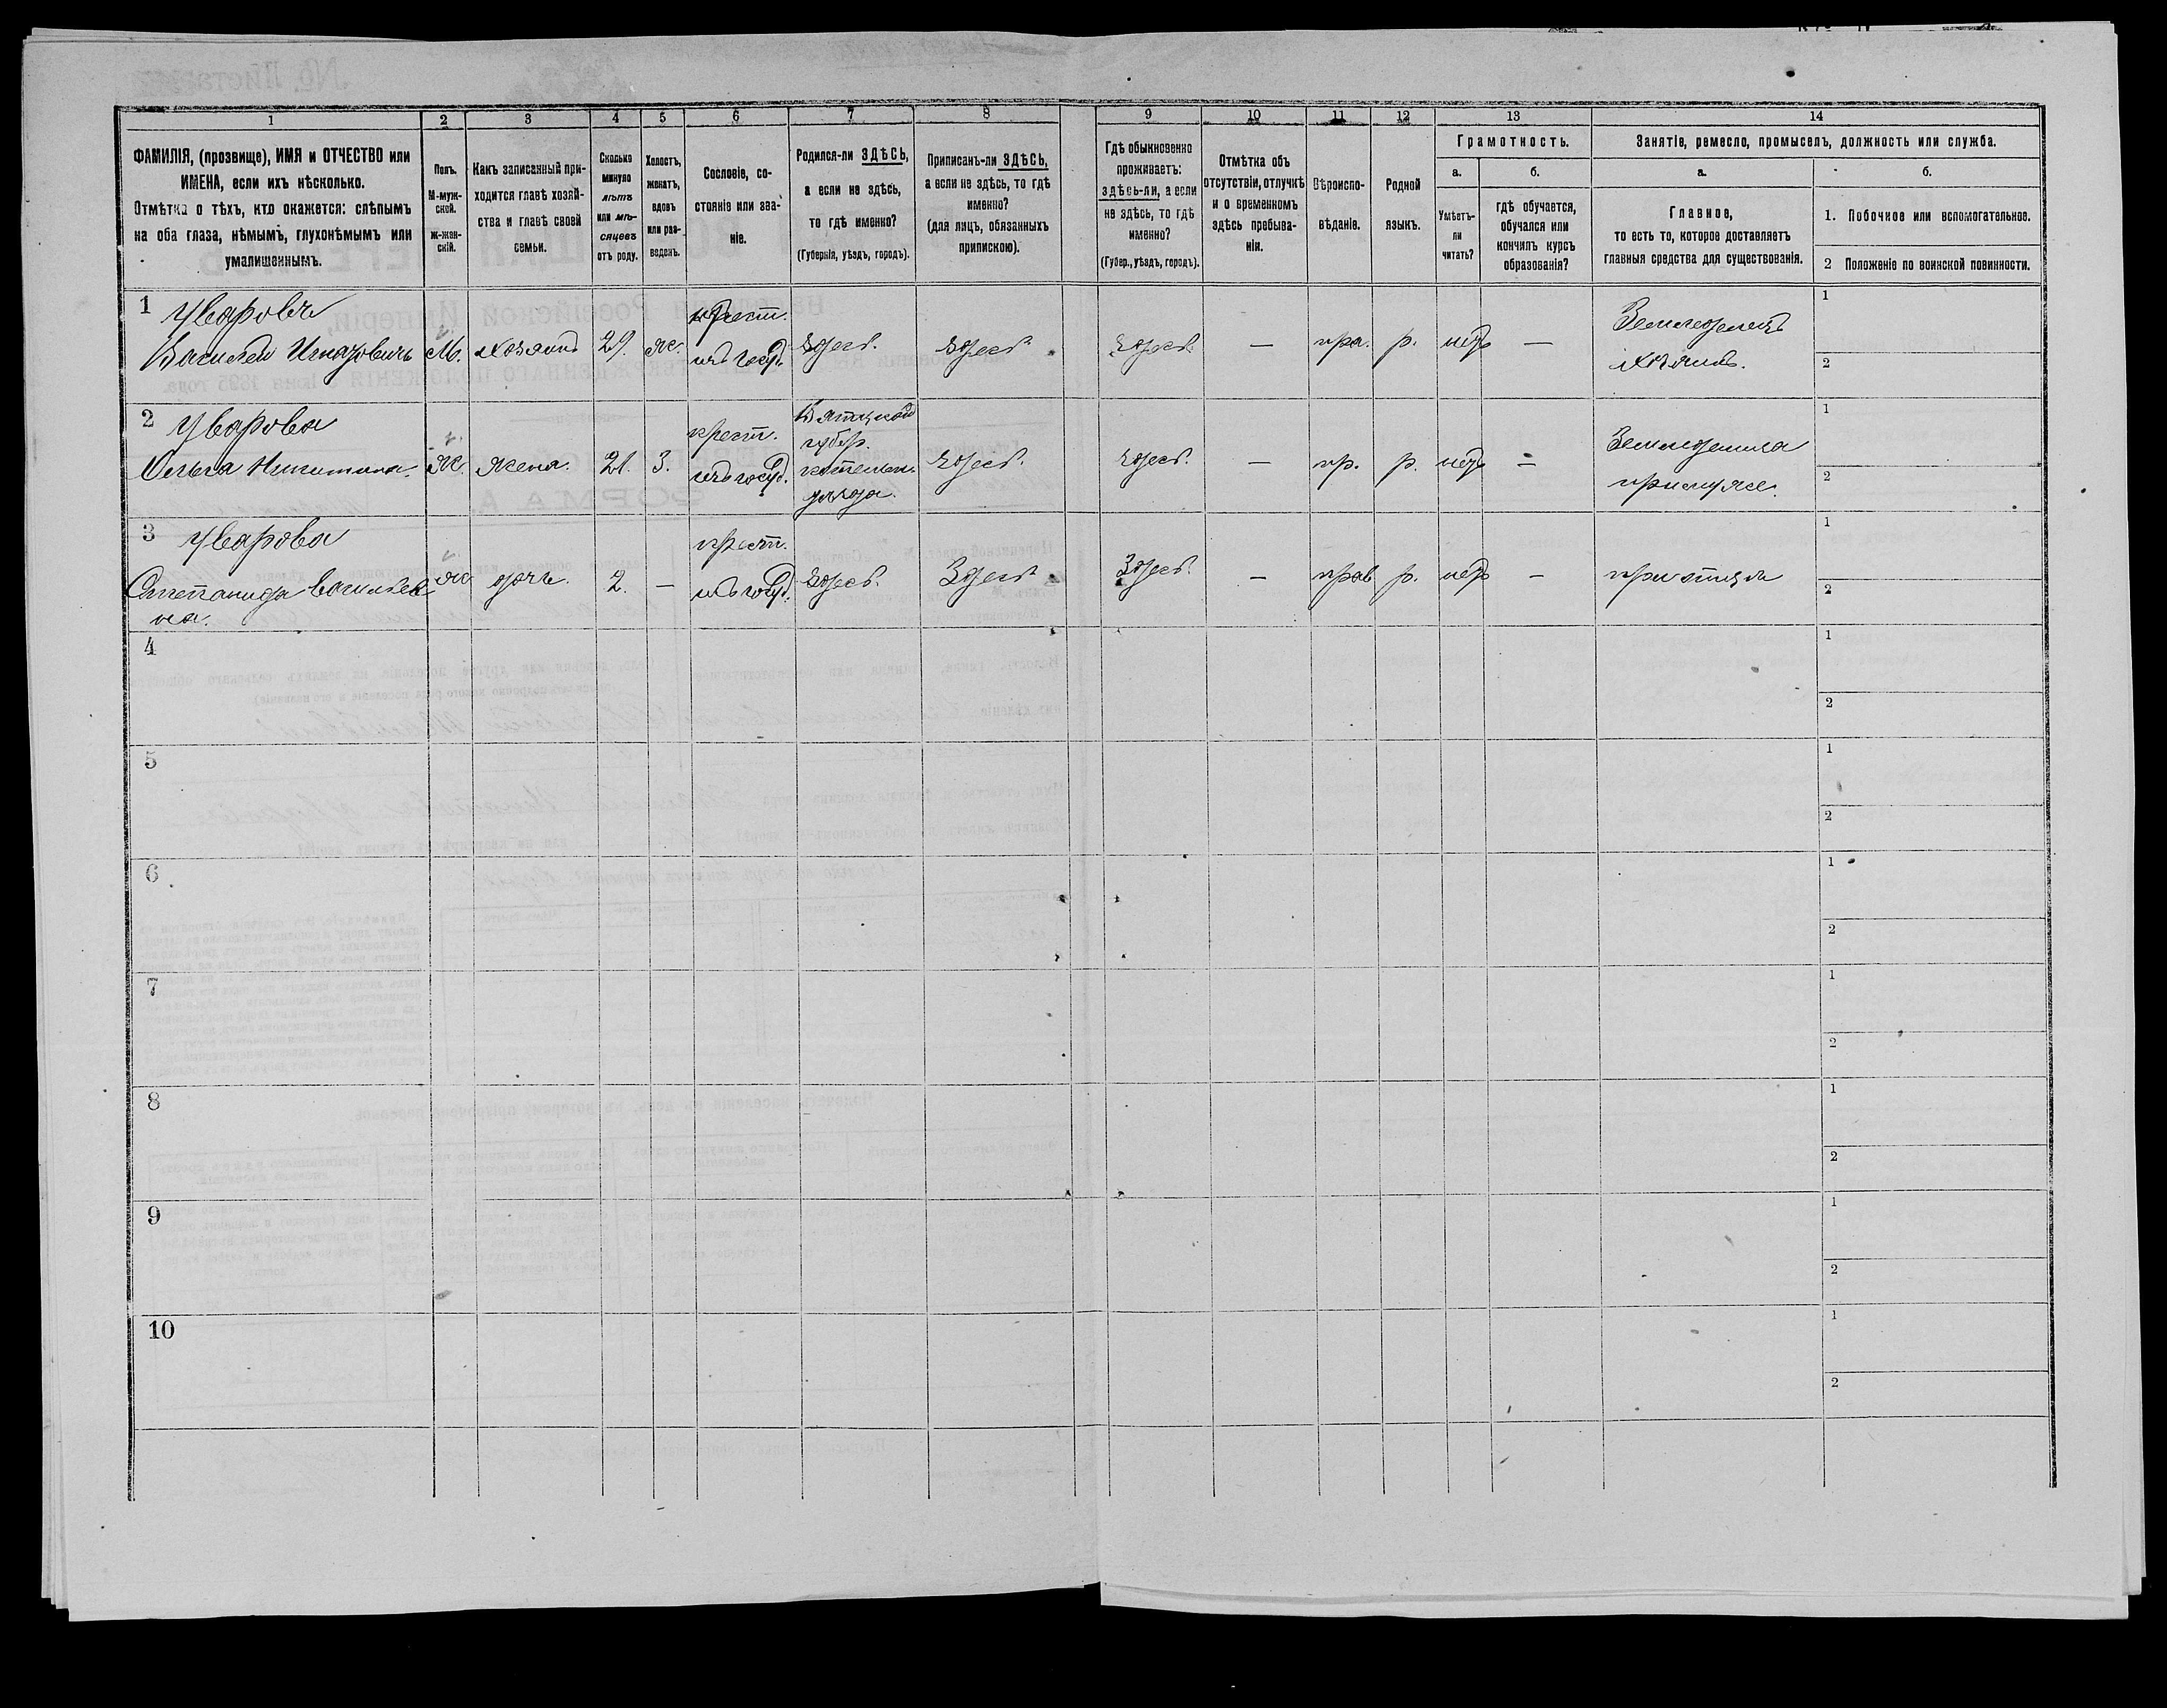 1 2 3 4 5 6 7 8 9 10 11 12 13 14
ФАМИЛІЯ, (прозвище), ИМЯ и ОТЧЕСТВО или
ИМЕНА, если ихъ нѣсколько.
Отмѣтка о тѣхъ, кто окажется: слѣпымъ
на оба глаза, нѣмымъ, глухонѣмымъ или
умалишеннымъ.
Полъ.
М-муж-
ской.
ж-жен-
скій.
Какъ записанный при-
ходится главѣ хозяй-
ства и главѣ своей
семьи.
Сколько
минуло
лѣтъ
или мѣ-
сяцевъ
отъ роду.
Холостъ,
женатъ,
вдовъ
или раз-
веденъ.
Сословіе, со-
стояніе или зва-
ніе.
Родился-ли ЗДѢСЬ,
а если не здѣсь,
то гдѣ именно?
(Губернія, уѣздъ, городъ).
Приписанъ-ли ЗДѢСЬ,
а если не здѣсь, то гдѣ
именно?
(для лицъ, обязанныхъ
припискою).
Гдѣ обыкновенно
проживаетъ:
здѣсь-ли, а если
не здѣсь, то гдѣ
именно?
(Губер., уѣздъ, городъ).
Отмѣтка объ
отсутствіи, отлучкѣ
и о временномъ
здѣсь пребыва-
ніи.
Вѣроиспо-
вѣданіе.
Родной
языкъ.
Грамотность.
а.
Умѣетъ-
ли
читать?
б.
гдѣ обучается,
обучался или
кончилъ курсъ
образованія?
Занятіе, ремесло, промыселъ, должность или служба.
а.
Главное,
то есть то, которое доставляетъ
главныя средства для существованія.
б.
1. Побочное или вспомогательное.
2 Положеніе по воинской повинности.
1 Уваровъ
Василій Игнатовичъ
М.
Хозяинъ
29.
Ж.
крест.
изъ госуд.
Здѣсь.
Здѣсь.
Здѣсь.
—
пра.
р.
нѣтъ
—
Земледѣлецъ
Хозяинъ.
1
2
2 Уварова
Ольга Никитина.
Ж.
Жена.
21.
З.
крест.
изъ госуд.
Вятской
губер.
котельн.
уѣзда.
Здѣсь.
Здѣсь.
—
пр.
р.
нѣтъ
—
Земледѣлица
при мужѣ.
1
2
3 Уварова
Степанида Василье
на.
Ж
дочь.
2.
—
крест.
изъ госуд.
Здѣсь.
Здѣсь
Здѣсь.
—
прав
р.
нѣтъ
—
при отцѣ
1
2
4
1
2
5
1
2
6
1
2
7
1
2
8
1
2
9
1
2
10
1
2